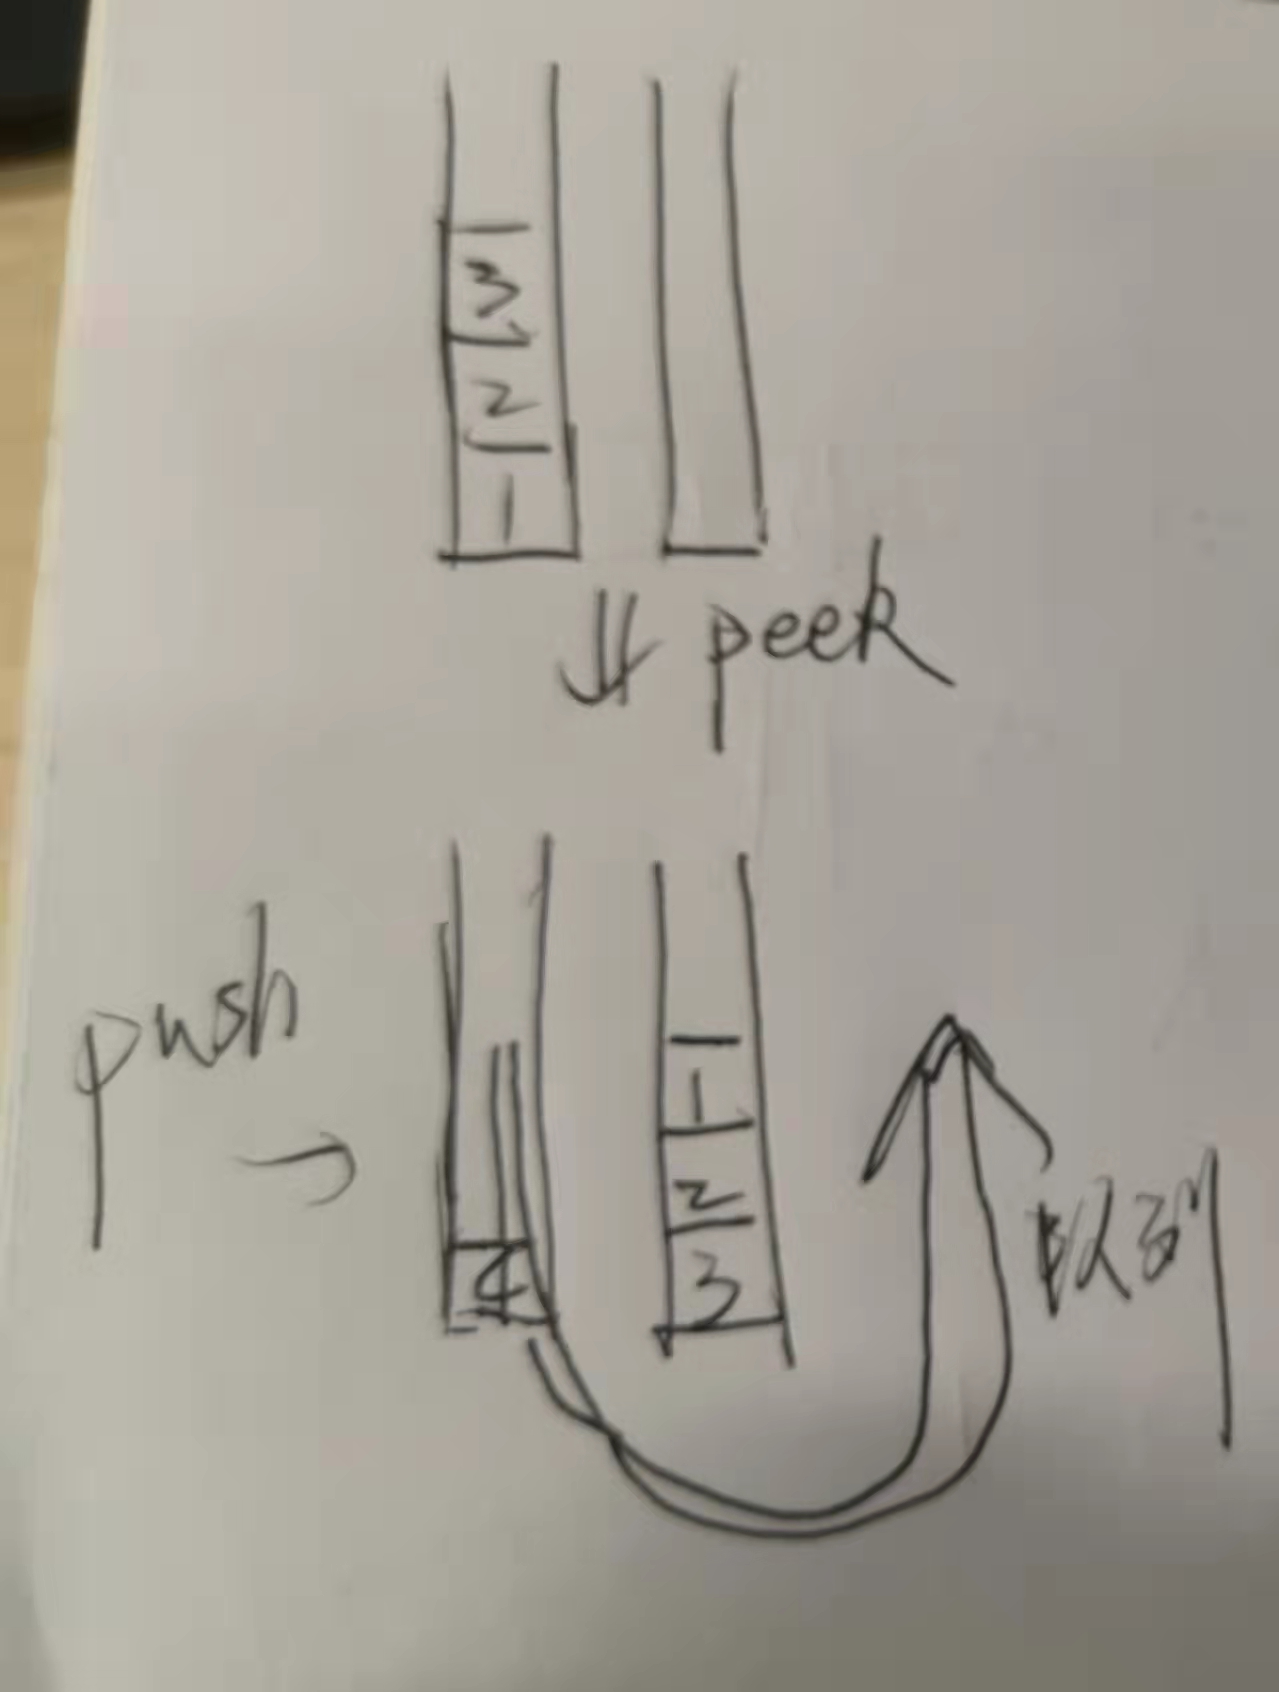 3
2
1
peek
push
1
2
3
4